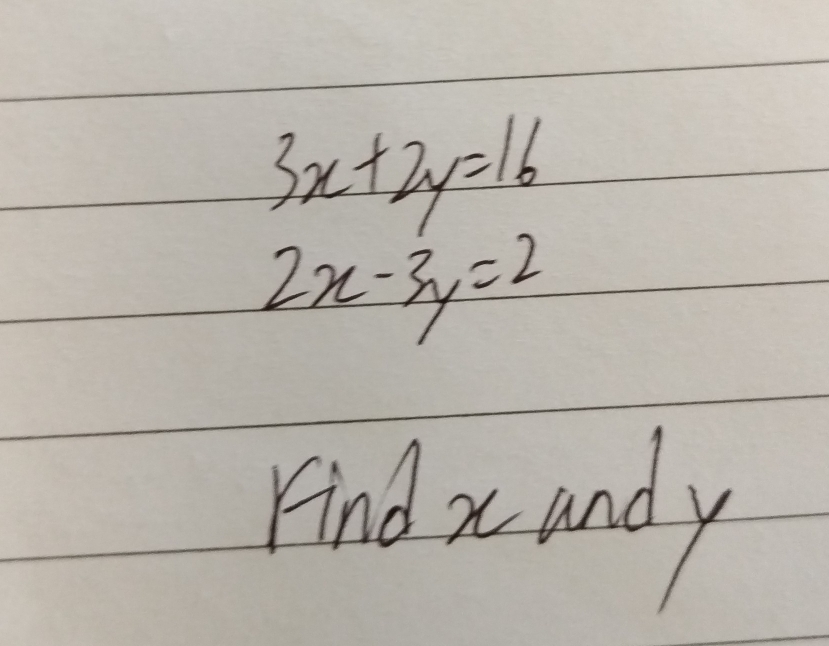 3x+2y=16
2x-3y=2
Find x and y